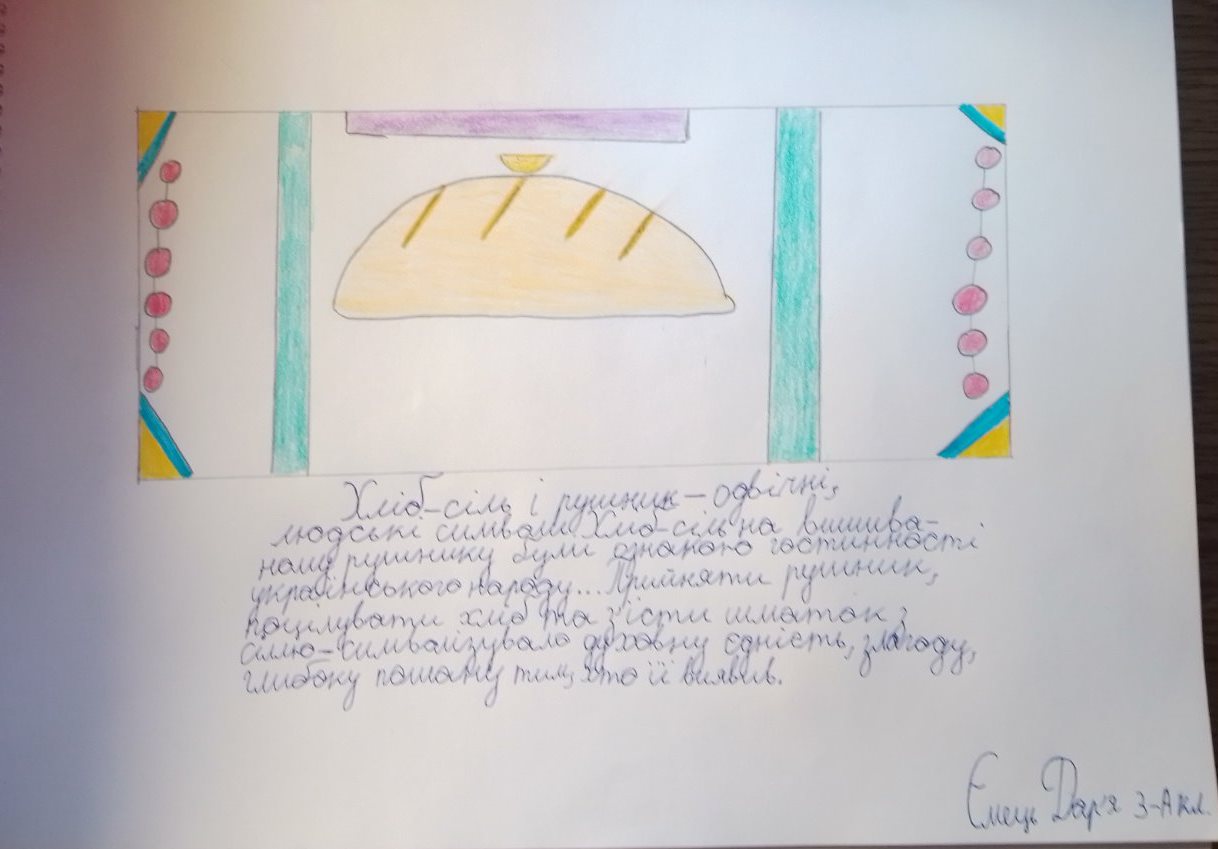 Хліб-сіль і рушник - одвічні,
людські символи. Хліб-сіль на вишива-
ному рушнику були ознакою гостинності
українського народу... Прийняти рушник,
поцілувати хліб та з'їсти шматок з
сіллю-символізувало духовну єдність, злагоду,
глибоку пошану тим, хто її виявив.
Ємець Дар'я 3-А кл.